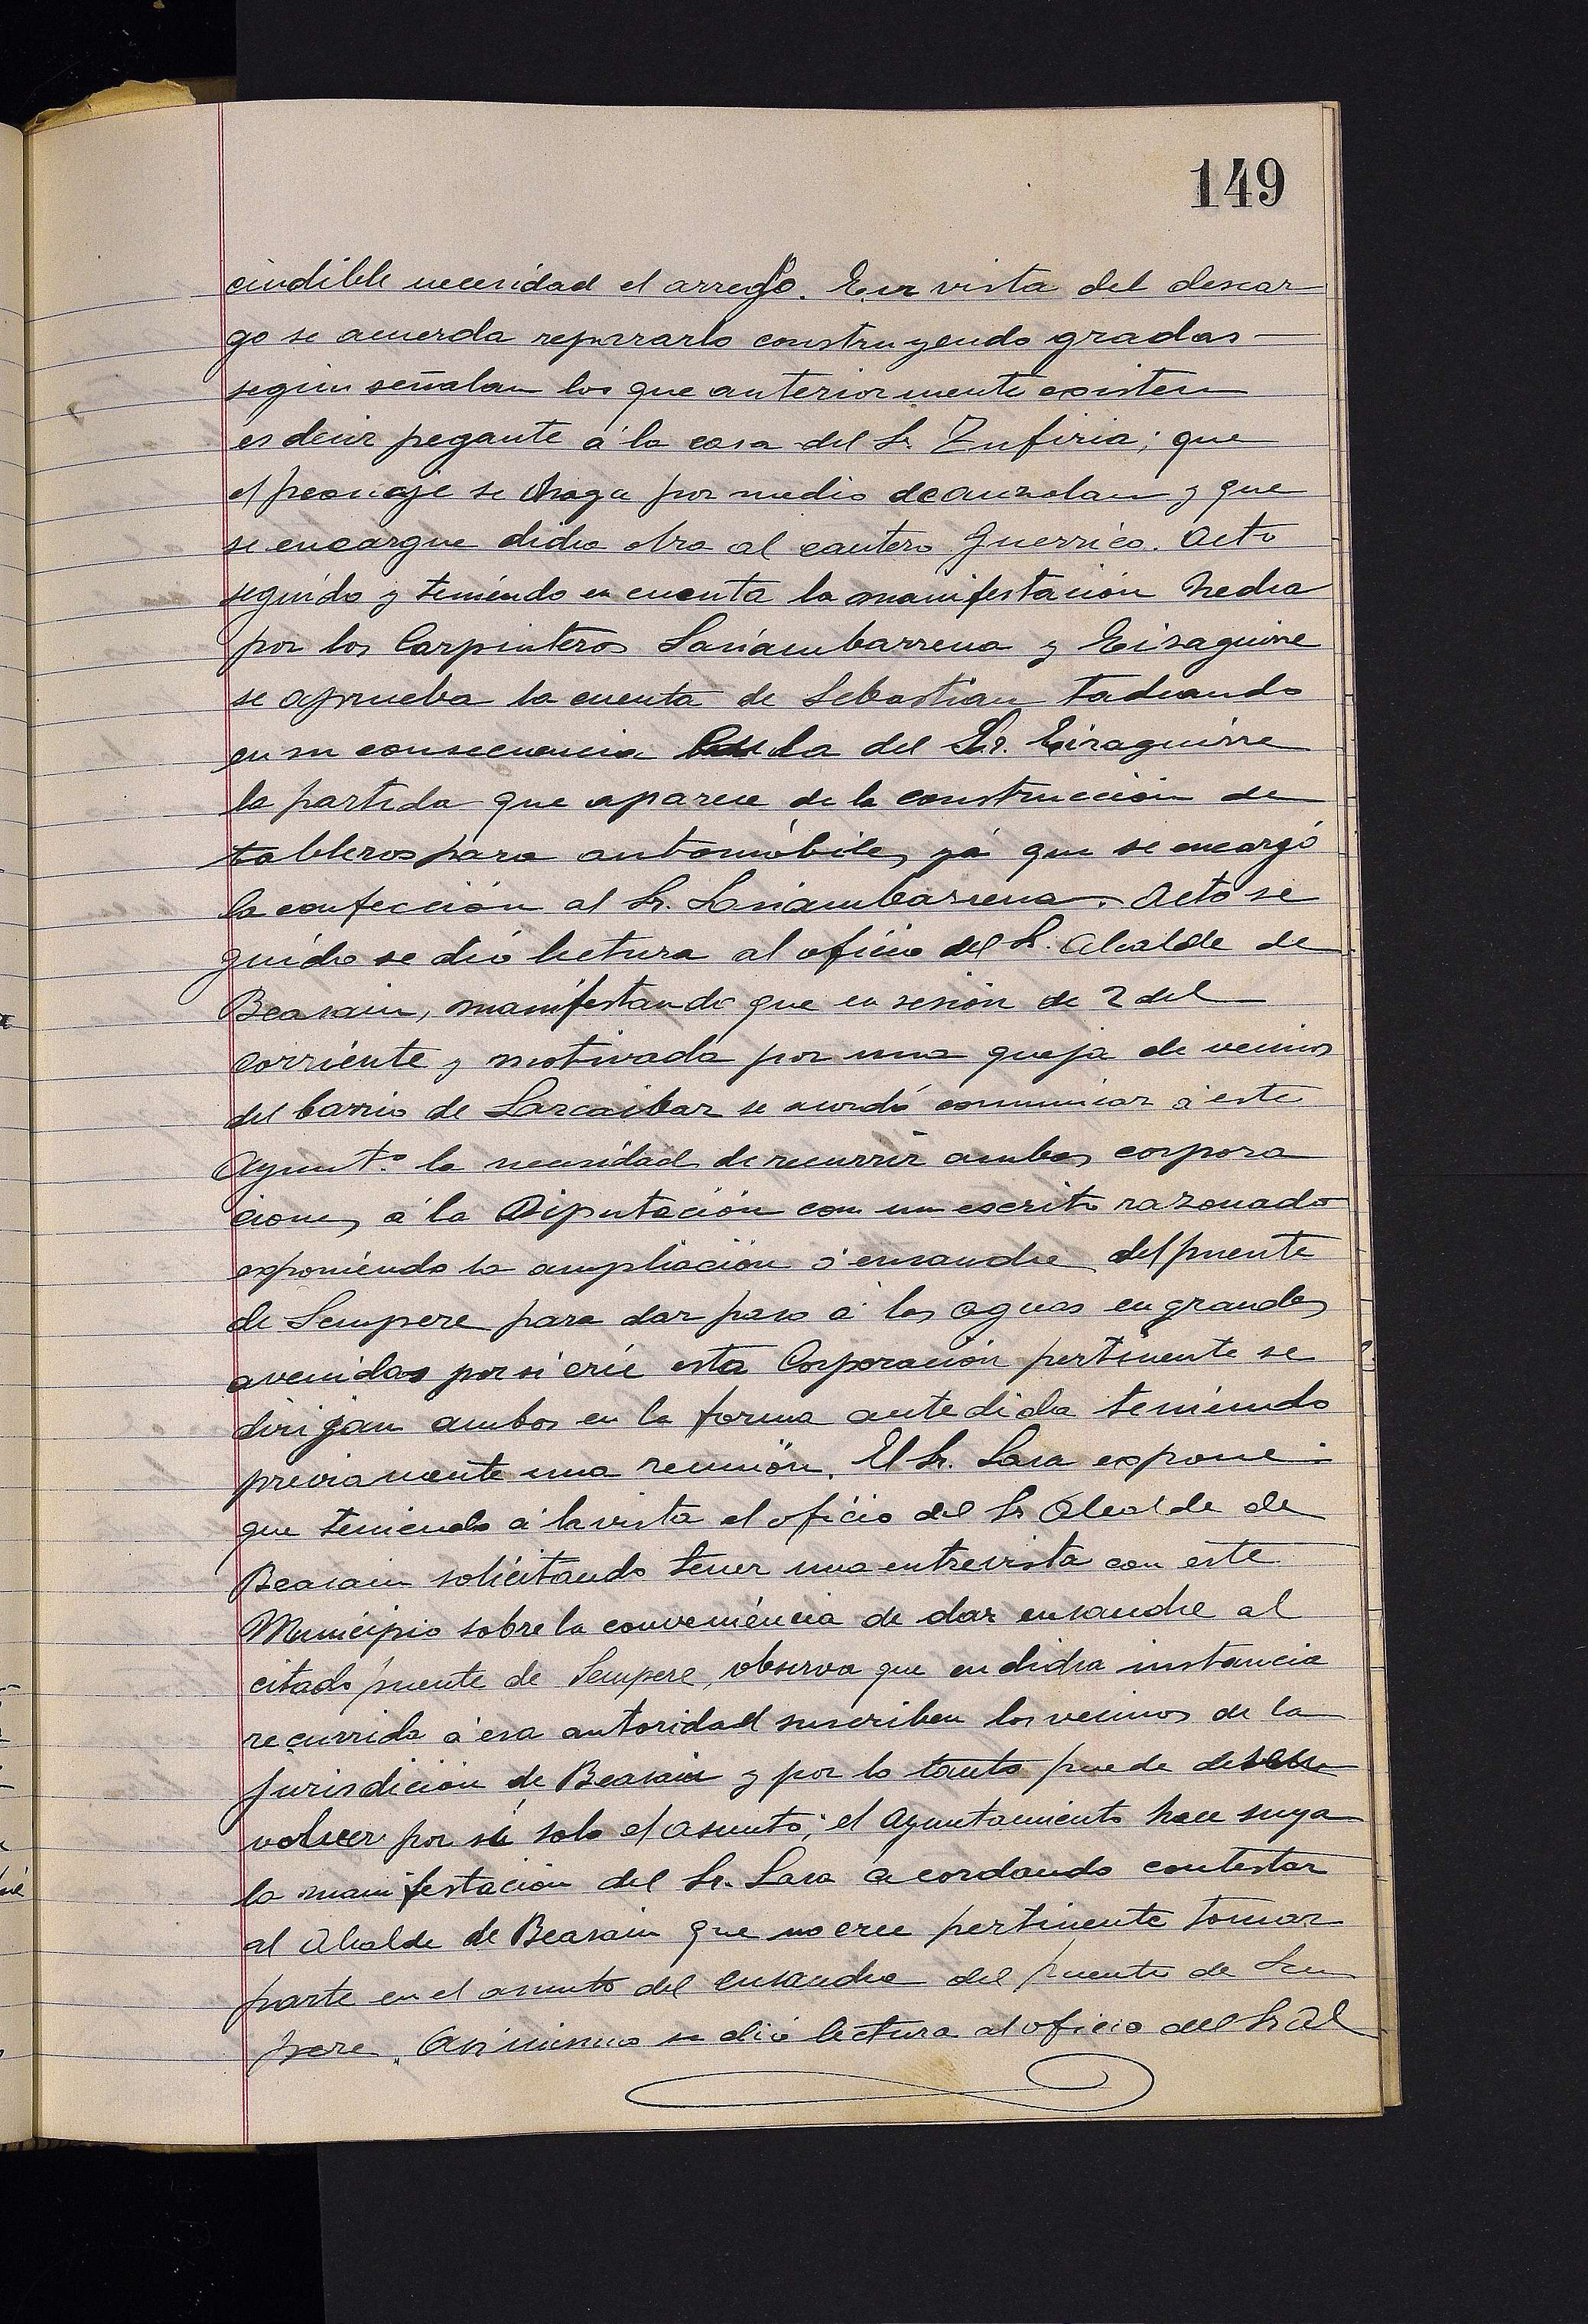 149
cindible necesidad el arreglo. En vista del descar
go se acuerda repararlo construyendo gradas —
según señalan los que anteriormente existen
es decir pegante á la casa del Sr. Zufiria; que
el peonaje se haga por medio de auzolan y que
se encargue dicha obra al cantero Guerrico. Acto
seguido y teniendo en cuenta la manifestación hecha
por los Carpinteros Sasiambarrena y Eizaguirre
se aprueba la cuenta de Sebastian tachando
en su consecuencia la del Sr. Eizaguirre
la partida que aparece de la construcción de
tableros para automóbiles, yá que se encargó
la confección al Sr. Sasiambarrena. Acto se
guido se dió lectura al oficio del Sr. Alcalde de
Beasain, manifestando que en sesión de 2 del
corriente y motivada por una queja de vecinos
del barrio de Lazcaibar se acordó comunicar á este
Ayunt.º la necesidad de recurrir ambas corpora
ciones á la Diputación con un escrito razonado
exponiendo la ampliación ó ensanche del puente
de Sempere para dar paso á las aguas en grandes
avenidas por si cree esta Corporación pertinente se
dirigan ambos en la forma antedicha teniendo
previamente una reunión. El Sr. Lasa expone:
que teniendo á la vista el oficio del Sr Alcalde de
Beasain solicitando tener una entrevista con este
Municipio sobre la conveniencia de dar ensanche al
citado puente de Sempere, observa que en dicha instancia
recurrida á esa autoridad suscriben los vecinos de la
jurisdición de Beasain y por lo tanto puede desen
volver por sí solo el asunto; el Ayuntamiento hace suya
la manifestación del Sr. Lasa acordando contestar
al Alcalde de Beasain que no cree pertinente tomar
parte en el asunto del ensanche del puente de Sem
pere. Asimismo se dió lectura al oficio del Sr Al